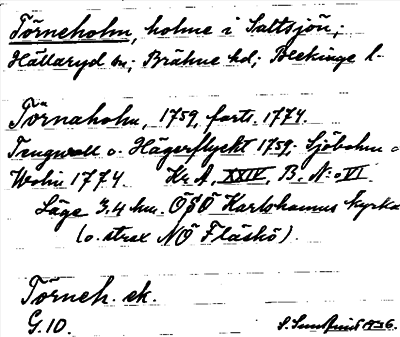 Törneholm, holme i Saltsjön;
Hällaryd sn; Bräkne hd; Blekinge l.
Törnaholm, 1759, forts. 1774.
Tengwall o. Hägerflyckt 1759; Sjöbohm o
Wolin 1774 Kr. A, XXIV, B. N:o VI.
Läge 3,4 km. ÖSÖ Karlshamns kyrka
(o. strax NÖ Fläskö).
Törneh. ek.
G. 10. S. 1936.